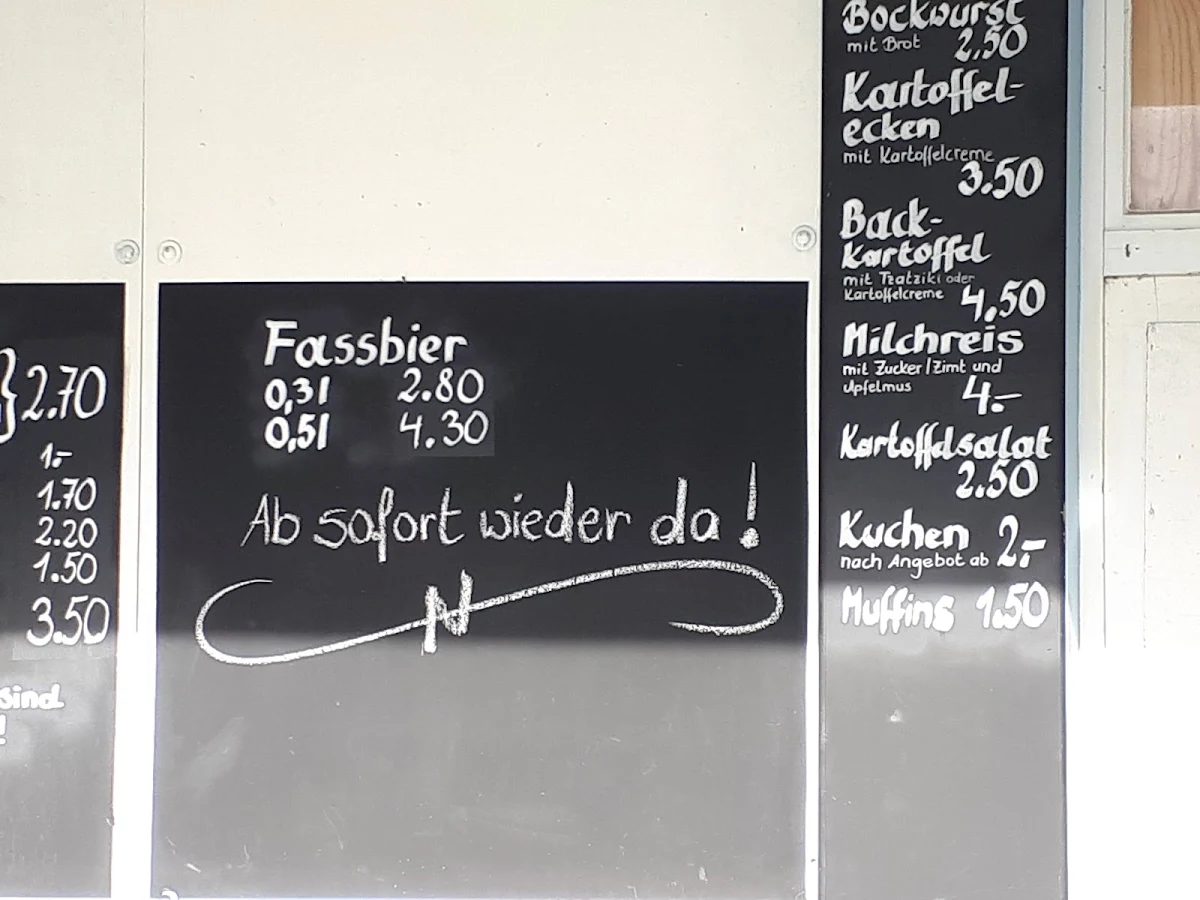 }2.70
1.-
1.70
2.20
1.50
3.50
sind
!
Fassbier
0,3l 2.80
0,5l 4.30
Ab sofort wieder da!
Bockwurst
mit Brot 2.50
Kartoffel-
ecken
mit Kartoffelcreme
3.50
Back-
kartoffel
mit Tzatziki oder
Kartoffelcreme 4,50
Milchreis
mit Zucker/Zimt und
Apfelmus
4.-
Kartoffelsalat
2.50
Kuchen 2.-
nach Angebot ab
Muffins 1.50